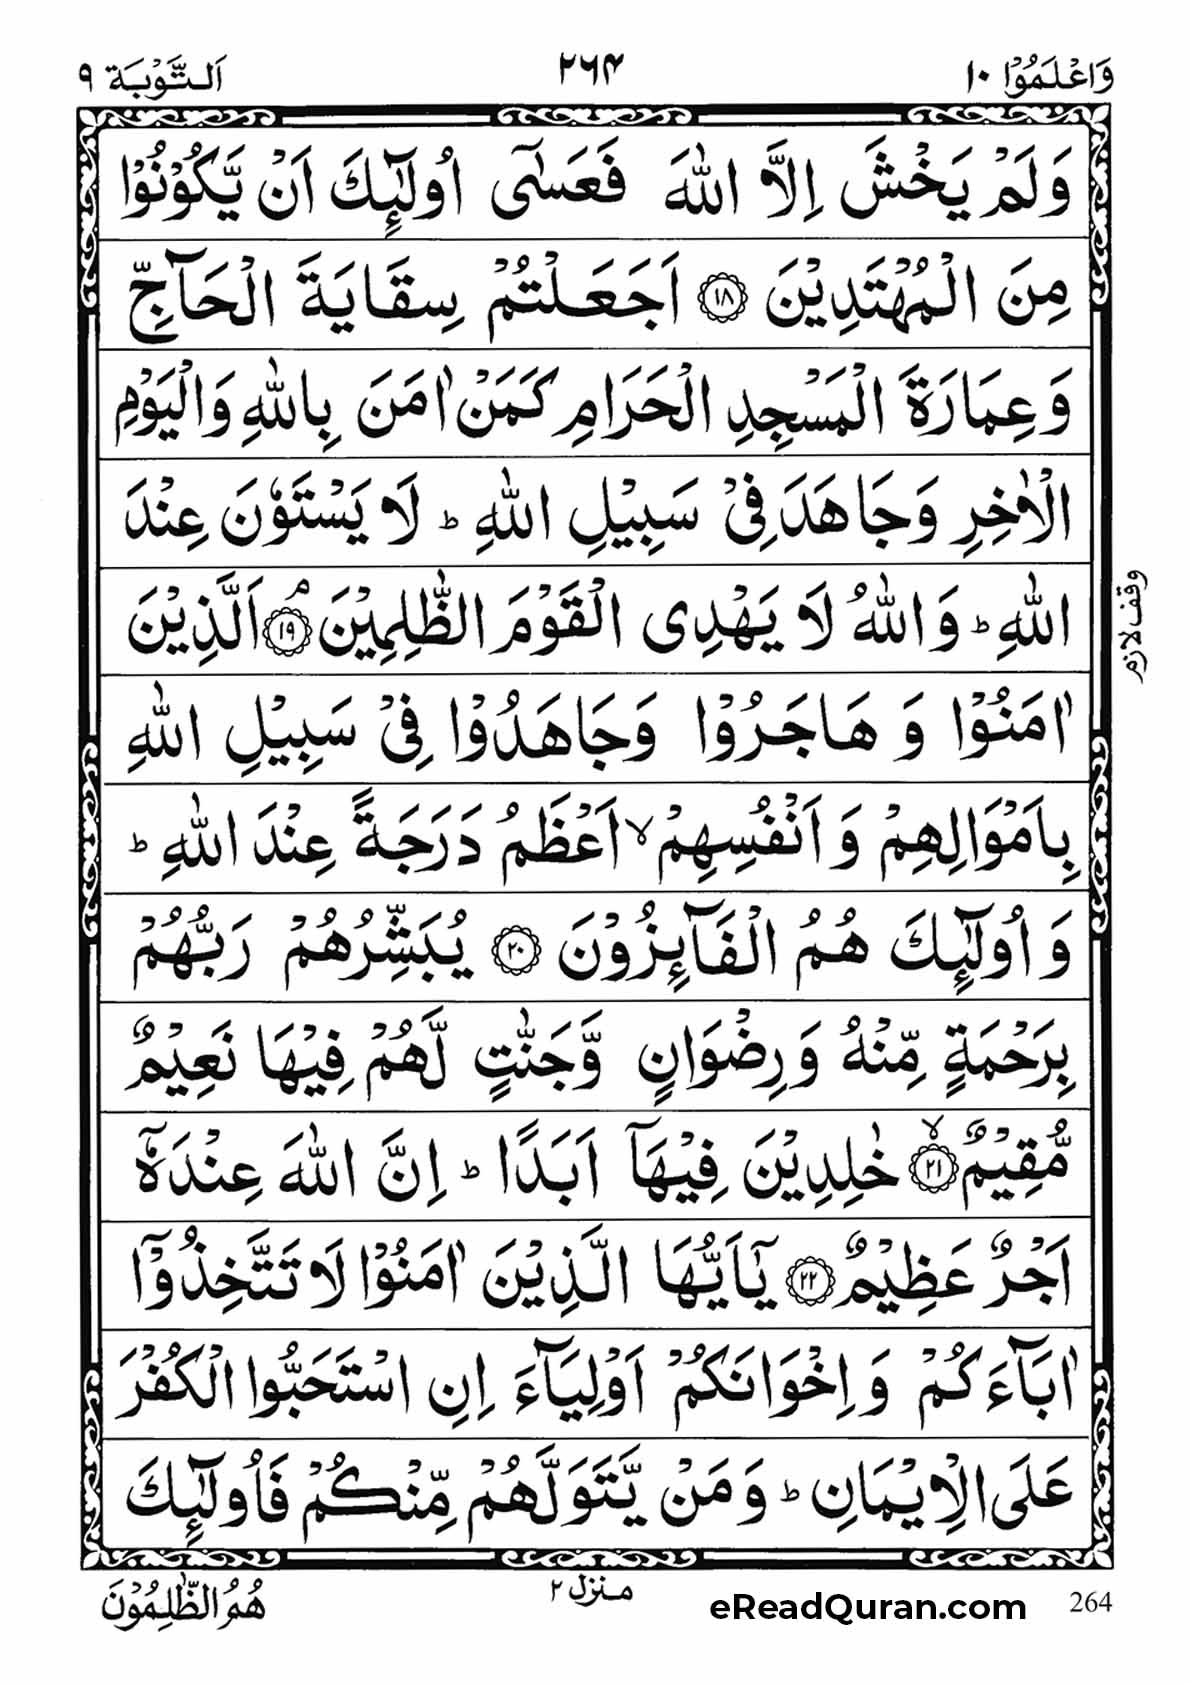 وَاعْلَمُوْۤا ١٠
٢٦٤
اَلتَّوْبَة ٩
وَلَمْ يَخْشَ اِلَّا اللّٰهَ فَعَسٰۤى اُولٰٓئِكَ اَنْ يَّكُوْنُوْا
مِنَ الْمُهْتَدِيْنَ ١٨ اَجَعَلْتُمْ سِقَايَةَ الْحَآجِّ
وَعِمَارَةَ الْمَسْجِدِ الْحَرَامِ كَمَنْ اٰمَنَ بِاللّٰهِ وَالْيَوْمِ
الْاٰخِرِ وَجَاهَدَ فِيْ سَبِيْلِ اللّٰهِ ؕ لَا يَسْتَوٗنَ عِنْدَ
اللّٰهِ ؕ وَاللّٰهُ لَا يَهْدِى الْقَوْمَ الظّٰلِمِيْنَ ۘ ١٩ اَلَّذِيْنَ
اٰمَنُوْا وَ هَاجَرُوْا وَجَاهَدُوْا فِيْ سَبِيْلِ اللّٰهِ
بِاَمْوَالِهِمْ وَ اَنْفُسِهِمْ ۙ اَعْظَمُ دَرَجَةً عِنْدَ اللّٰهِ ؕ
وَ اُولٰٓئِكَ هُمُ الْفَآئِزُوْنَ ٢٠ يُبَشِّرُهُمْ رَبُّهُمْ
بِرَحْمَةٍ مِّنْهُ وَ رِضْوَانٍ وَّجَنّٰتٍ لَّهُمْ فِيْهَا نَعِيْمٌ
مُّقِيْمٌ ۙ ٢١ خٰلِدِيْنَ فِيْهَاۤ اَبَدًا ؕ اِنَّ اللّٰهَ عِنْدَهٗۤ
اَجْرٌ عَظِيْمٌ ٢٢ يٰۤاَيُّهَا الَّذِيْنَ اٰمَنُوْا لَا تَتَّخِذُوْۤا
اٰبَآءَكُمْ وَ اِخْوَانَكُمْ اَوْلِيَآءَ اِنِ اسْتَحَبُّوا الْكُفْرَ
عَلَى الْاِيْمَانِ ؕ وَ مَنْ يَّتَوَلَّهُمْ مِّنْكُمْ فَاُولٰٓئِكَ
وقف لازم
هُمُ الظّٰلِمُوْنَ
منزل ٢
eReadQuran.com
264